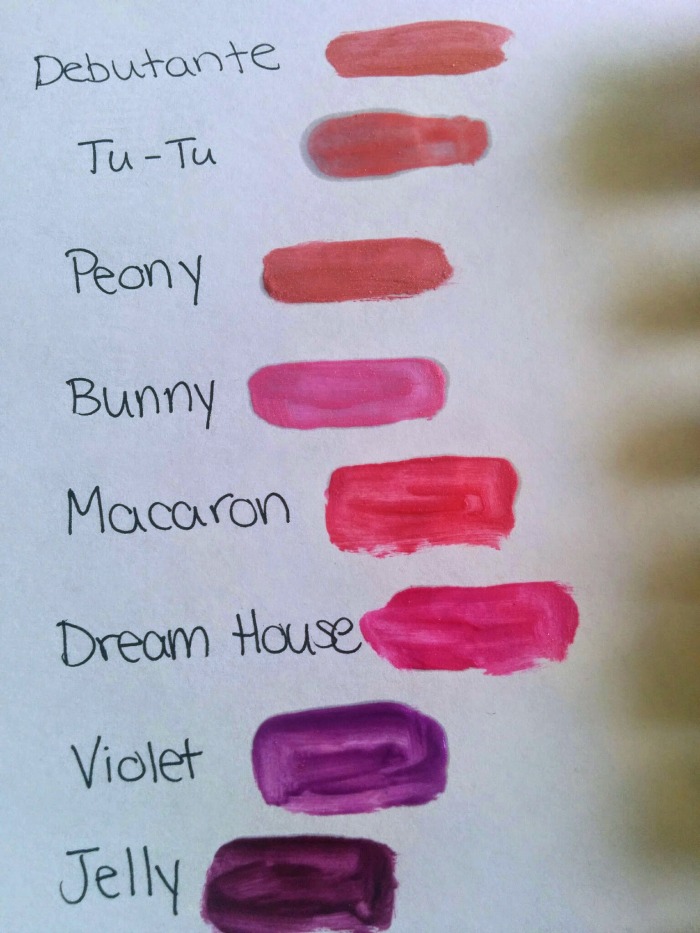 Debutante
Tu-Tu
Peony
Bunny
Macaron
Dream House
Violet
Jelly